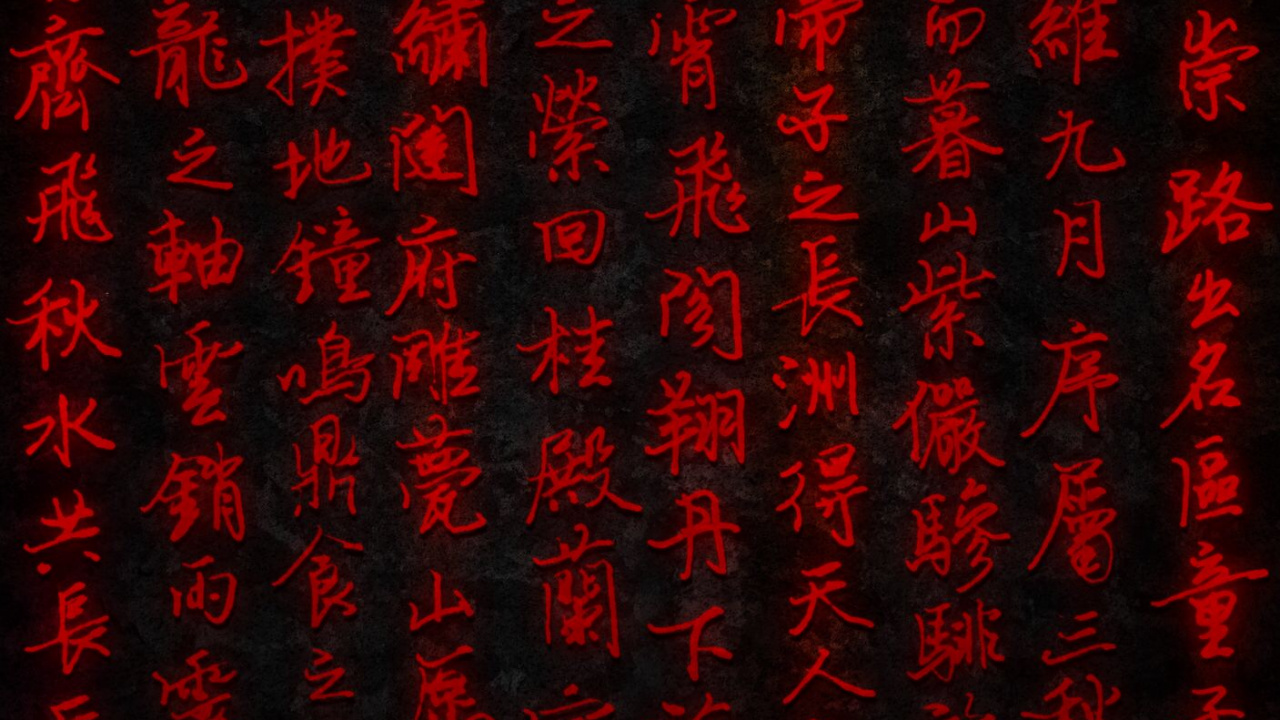 崇路出名區童子
維九月序屬三秋
而暮山紫儼驂騑
帝子之長洲得天人
霄飛閣翔丹下
之縈回桂殿蘭
繡闥府雕甍山原
撲地鐘鳴鼎食之
龍之軸雲銷雨
齊飛秋水共長